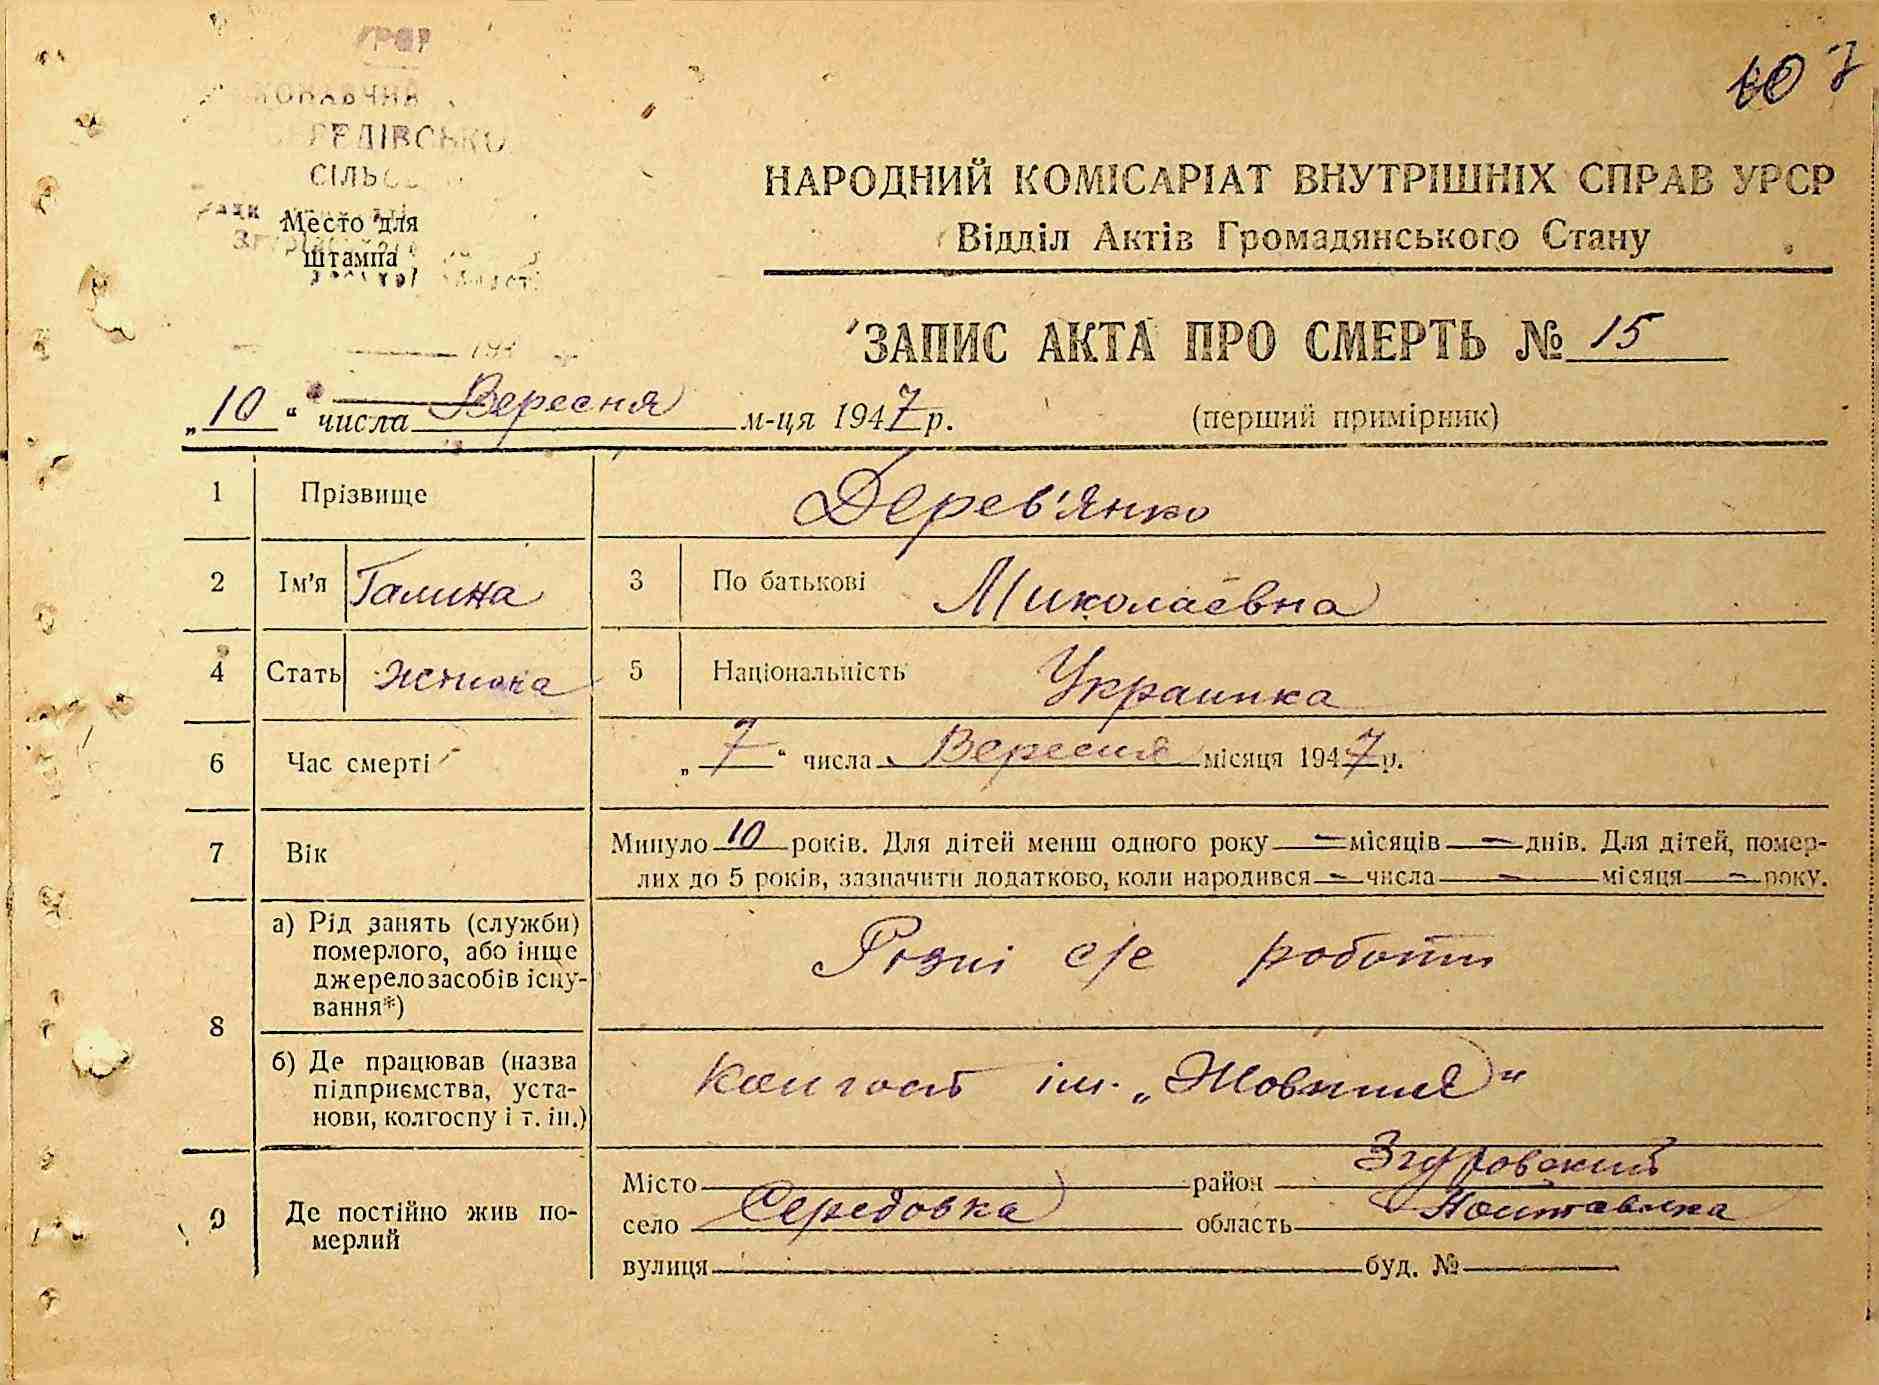 107
СІЛЬ
Место для
штампа
НАРОДНИЙ КОМІСАРІАТ ВНУТРІШНІХ СПРАВ УРСР
Відділ Актів Громадянського Стану
ЗАПИС АКТА ПРО СМЕРТЬ № 15
„10“ числа Вересня м-ця 1947 р.
(перший примірник)
1 Прізвище Дерев'янко
2 Ім'я Галина 3 По батькові Миколаєвна
4 Стать 5 Національність Украинка
6 Час смерті „7“ числа Вересня місяця 1947 р.
7 Вік Минуло 10 років. Для дітей менш одного року — місяців — днів. Для дітей, помер-
лих до 5 років, зазначити додатково, коли народився — числа — місяця — року.
8 а) Рід занять (служби)
померлого, або інще
джерело засобів існу-
вання*)
Різні с/г роботи
б) Де працював (назва
підприємства, уста-
нови, колгоспу і т. ін.)
Колгосп ім. „Жовтня“
9 Де постійно жив по-
мерлий
Місто район Згуровский
село Середовка область Полтавска
вулиця буд. №